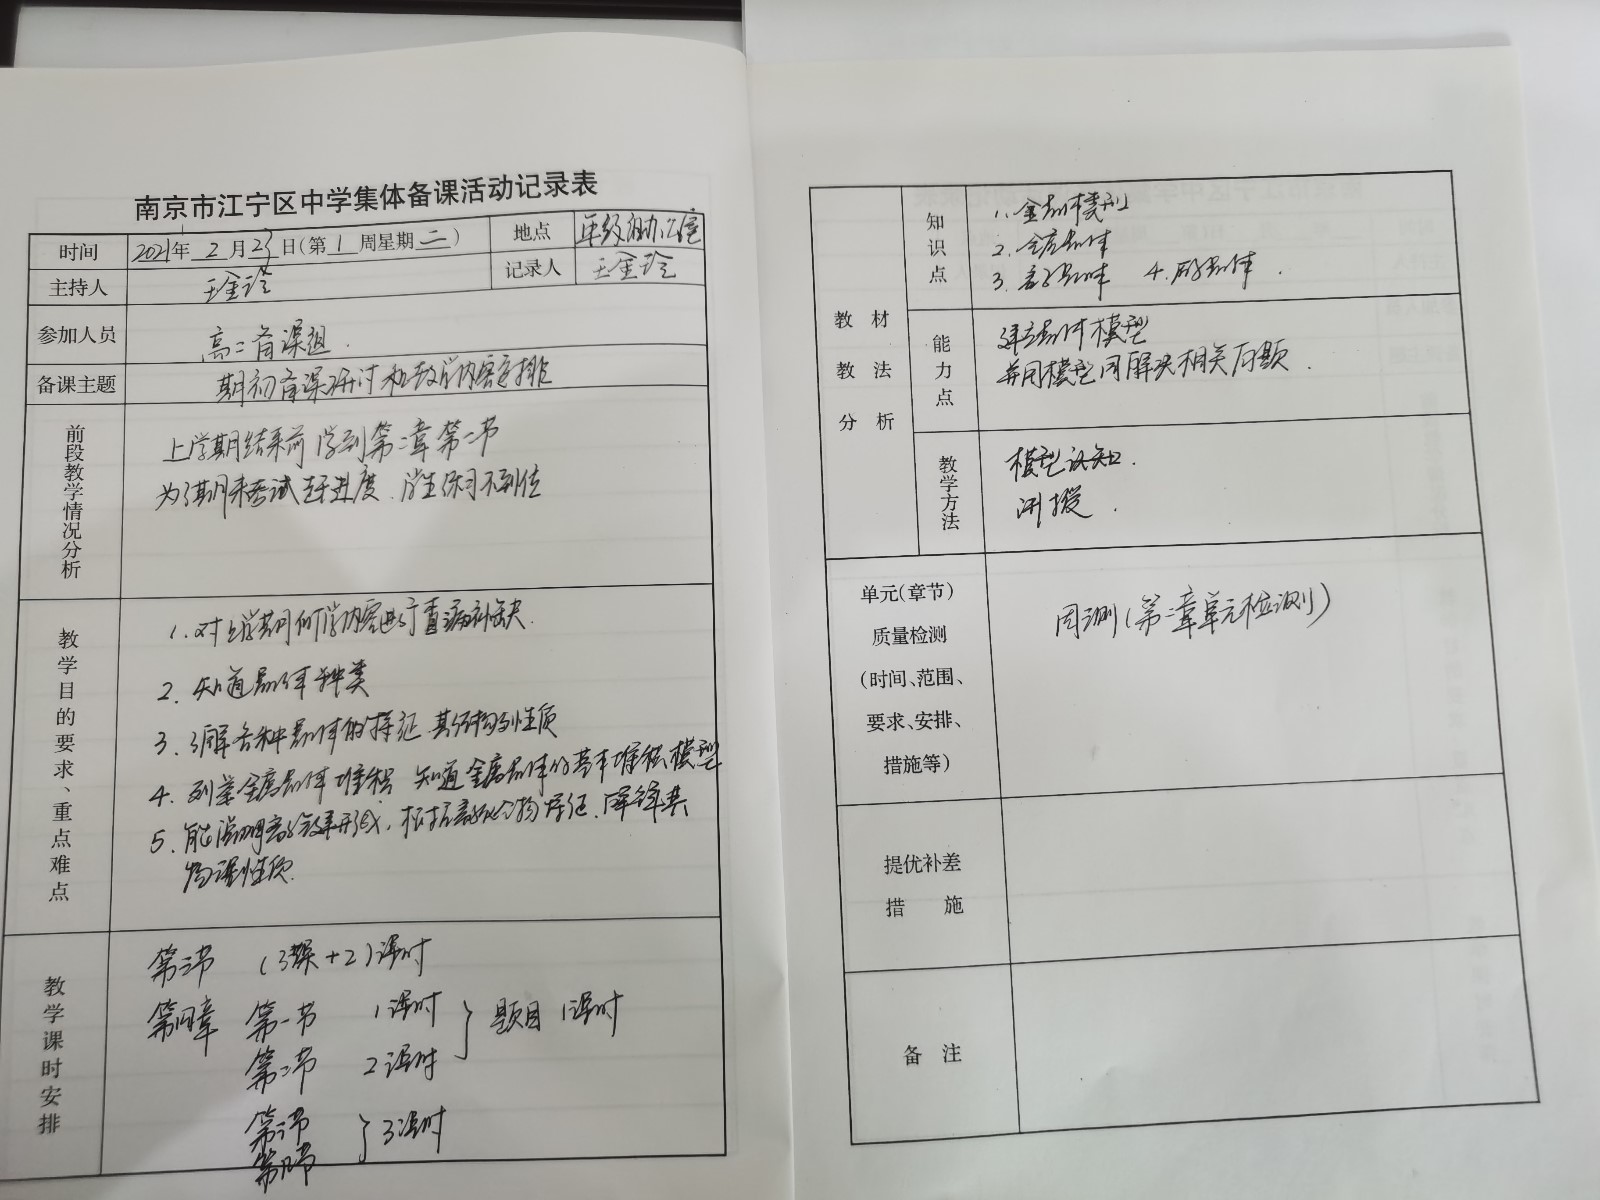 南京市江宁区中学集体备课活动记录表
时间 2021年 2 月 23 日(第 1 周星期 二 ) 地点 年级组办公室
主持人 王金玲 记录人 王金玲
参加人员 高二备课组.
备课主题 期初备课研讨和教学内容安排
前段教学情况分析
上学期结束前 学到第二章第二节
为了期末考试赶进度.学生练习不到位
教学目的要求、重点难点
1.对上学期所学内容进行查漏补缺.
2.知道晶体种类
3.了解各种晶体的特征.其结构到性质
4.列举金属晶体堆积 知道金属晶体的基本堆积模型
5.能说明离子键形成,根据离子化合物特征.解释其
物理性质.
教学课时安排
第三节 (3课+2)课时
第四章 第一节 1课时
第二节 2课时 } 题目 1课时
第三节
第四节 } 3课时
教材教法分析
知识点
1.金刚体模型
2.金属晶体
3.离子晶体 4.分子晶体.
能力点
建立晶体模型
并用模型解决相关问题.
教学方法
模型认知.
讲授.
单元(章节)
质量检测
(时间、范围、
要求、安排、
措施等)
周测(第二章单元检测)
提优补差
措 施
备 注